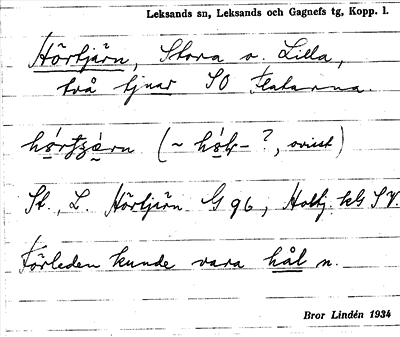 Leksands sn, Leksands och Gagnefs tg, Kopp. l.
Hörtjärn, Stora o. Lilla,
två tjnar SO Flatarna.
(~ - ?, ovisst)
St., L. Hörtjärn G 96, Holtj. kbl SV.
Förleden kunde vara hål n.
Bror Lindén 1934